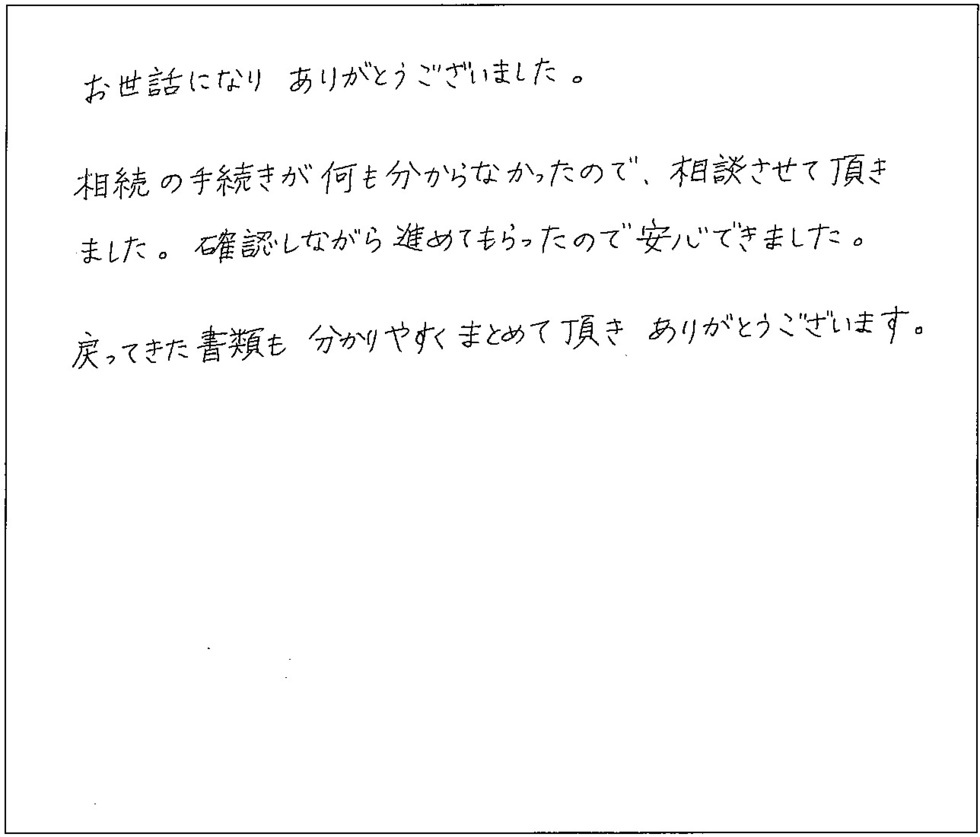 お世話になり ありがとうございました。
相続の手続きが何も分からなかったので、相談させて頂き
ました。確認しながら進めてもらったので安心できました。
戻ってきた書類も 分かりやすくまとめて頂き ありがとうございます。